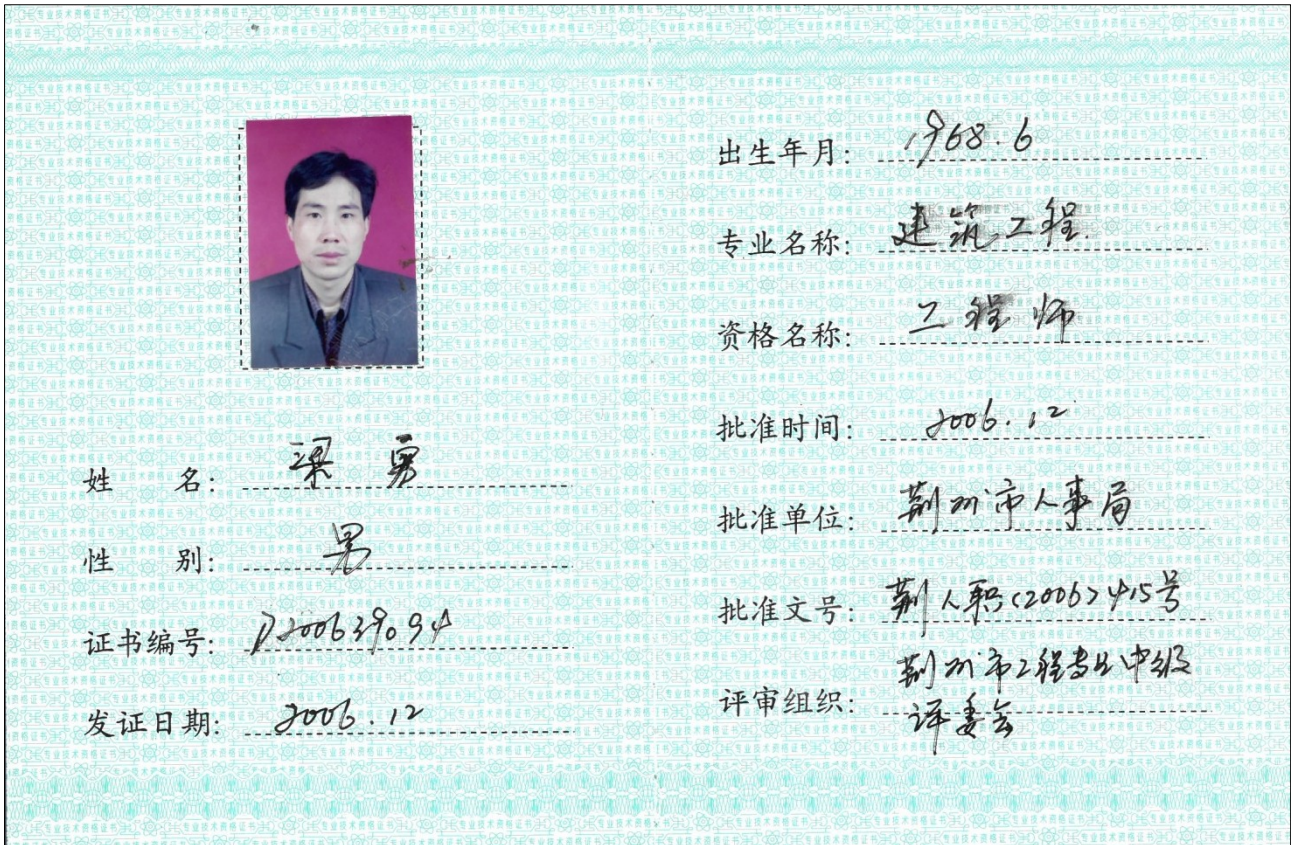 姓 名：梁勇
性 别：男
证书编号：
发证日期：2006.12
出生年月：1968.6
专业名称：建筑工程
资格名称：工程师
批准时间：2006.12
批准单位：荆州市人事局
批准文号：荆人职(2006)415号
评审组织：荆州市工程专业中级
评委会